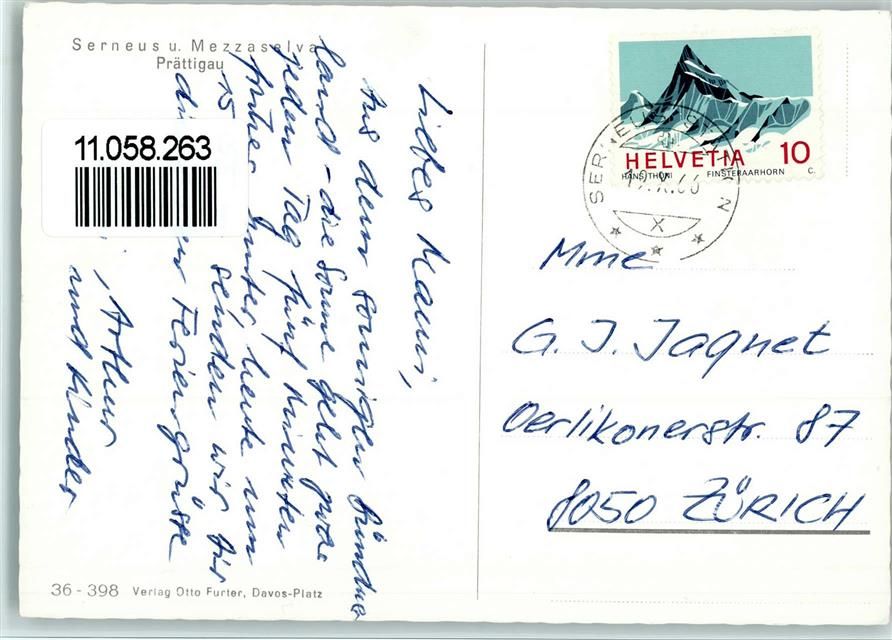 Serneus u. Mezzaselva
Prättigau
11.058.263
Liebes Mami,
Aus dem sonnigen Bündner
land - die Sonne geht
jeden Tag fünf Minuten
früher unter, heute um
15 senden wir Dir
Feriengrüsse
Arthur
und Kinder
36 - 398 Verlag Otto Furter, Davos-Platz
HELVETIA 10
HANS THÖNI FINSTERAARHORN C.
X.66
X
Mme
G. J. Jaqnet
Oerlikonerstr. 87
8050 ZÜRICH